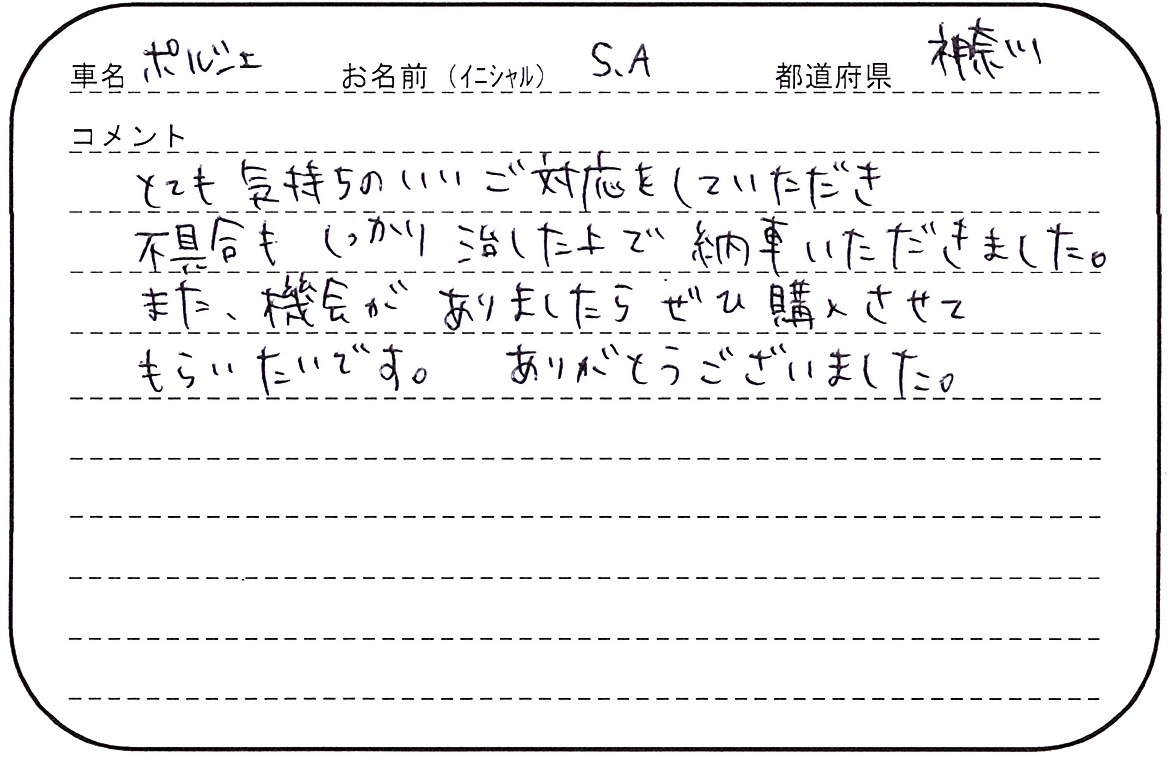 車名 ポルシェ お名前(イニシャル) S.A 都道府県 神奈川
コメント
とても気持ちのいいご対応をしていただき
不具合もしっかり治した上で納車いただきました。
また、機会がありましたらぜひ購入させて
もらいたいです。 ありがとうございました。